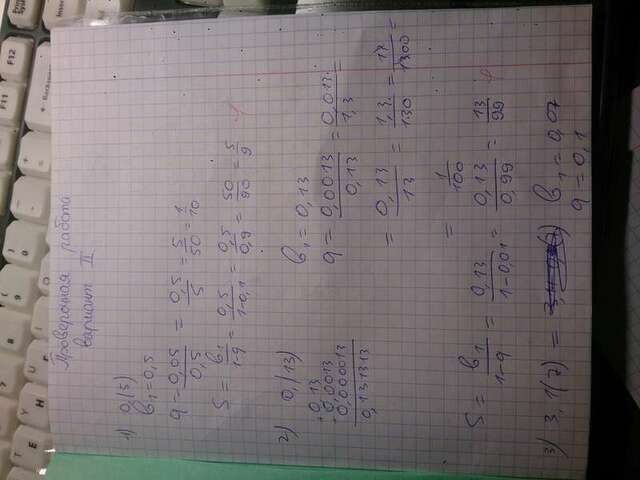 Проверочная работа
вариант II
1) 0,(5)
b₁ = 0,5
q = 0,05/0,5 = 0,5/5 = 5/50 = 1/10
S = b₁/1-q = 0,5/1-0,1 = 0,5/0,9 = 50/90 = 5/9
2) 0,(13)
0,13
+0,0013
+0,000013
0,131313
b₁ = 0,13
q = 0,0013/0,13 = 0,013/1,3 =
= 0,13/13 = 1,3/130 = 13/1300 =
= 1/100
S = b₁/1-q = 0,13/1-0,01 = 0,13/0,99 = 13/99
3) 3,1(7) =
b₁ = 0,07
q = 0,1
F12
F11